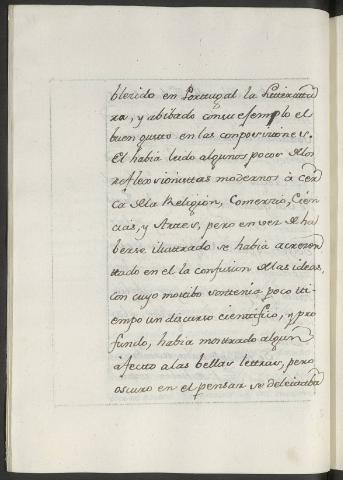 blecido en Portugal la Litteratu
ra, y abibado con su ejemplo el
buen gusto en las conposiciones.
El habia leido algunos pocos de los
reflexsionistas modernos à cer
ca de la Religion, Comersio, Cien
cias, y Artes, pero en vez de ha
berse ilustrado se habia acresen
ttado en el la confusion de las ideas,
con cuyo motibo sostenia poco tti
empo un discurso cientifico, y pro
fundo, habia mostrado algun
àfecto a las bellas letras, pero
oscuro en el pensar se deleitaba